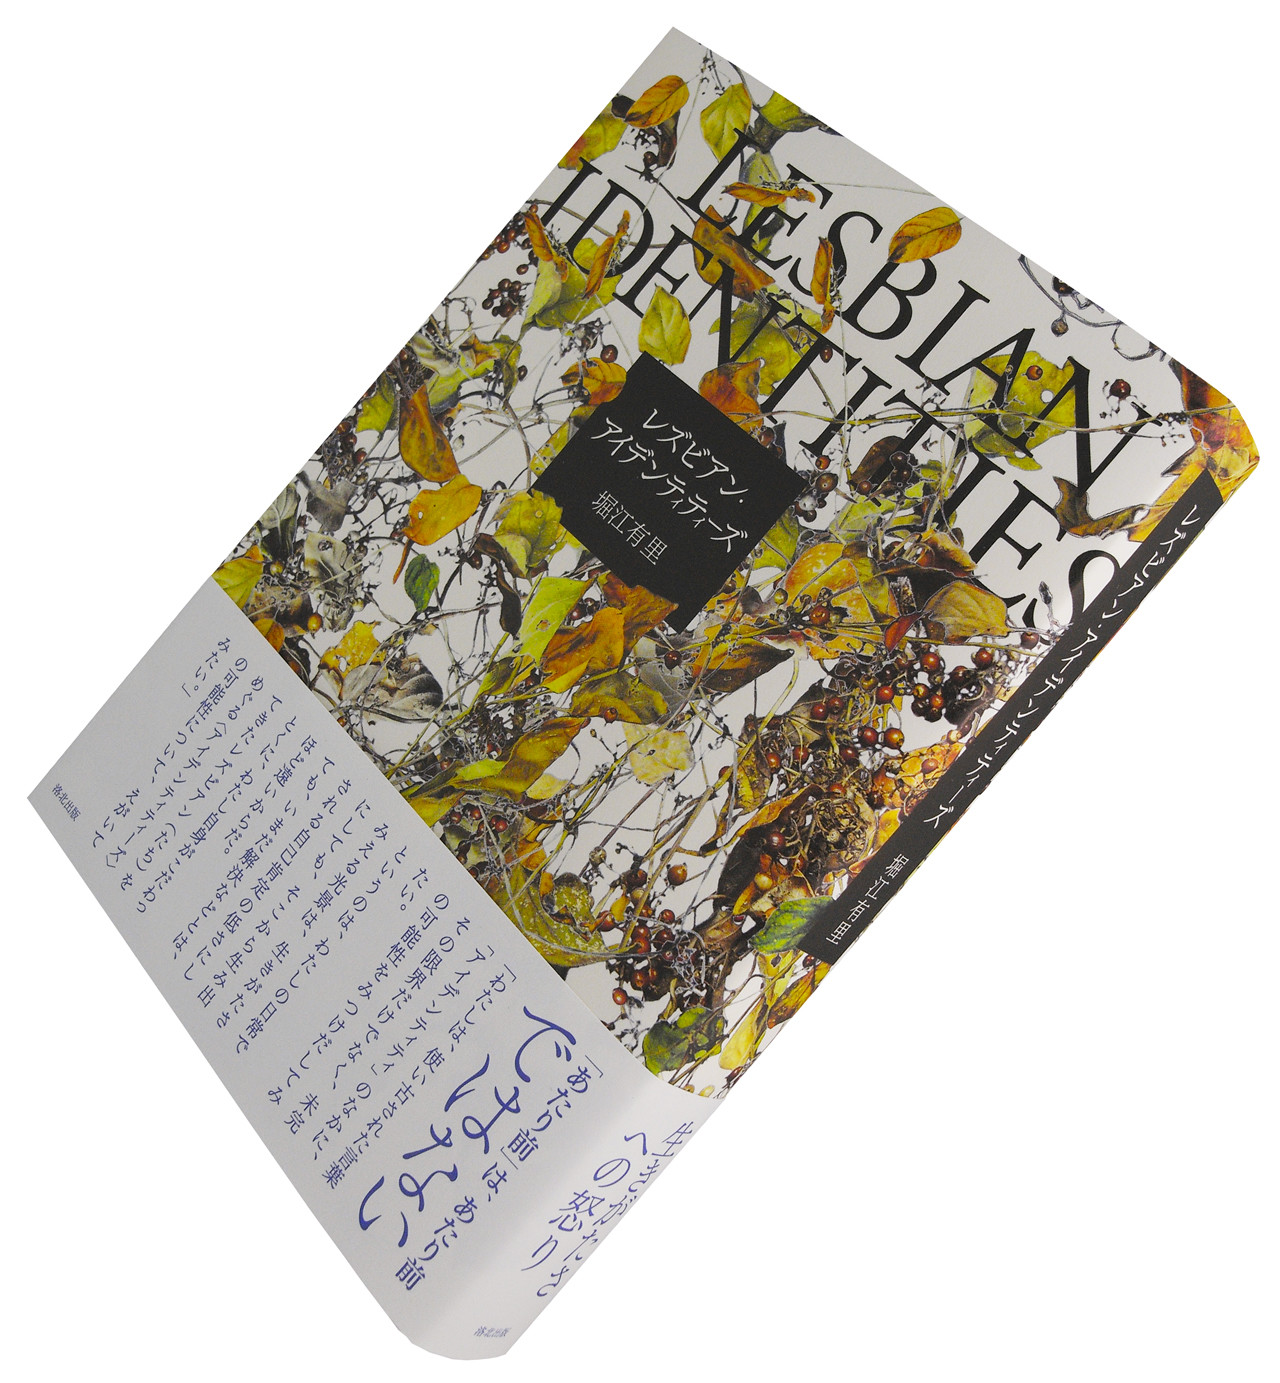 LESBIAN
IDENTITIES
レズビアン・
アイデンティティーズ
堀江有里
レズビアン・アイデンティティーズ 堀江有里
「あたり前」は、あたり前
ではない
「わたしは、使い古された言葉
「アイデンティティ」のなかに、
その限界だけでなく、未完
の可能性をみつけだしてみ
たい。
というのは、わたしの日常で
みえる光景は、生きがたさ
にしても、そこから生み出
される自己肯定の低さにし
ても、いまだ解決などとは、
ほど遠いからだ。
とくに、わたし自身がこだわっ
てきたレズビアン（たち）を
めぐる〈アイデンティティーズ〉
の可能性について、えがいて
みたい。」
洛北出版
生きがたさ
への怒り
洛北出版